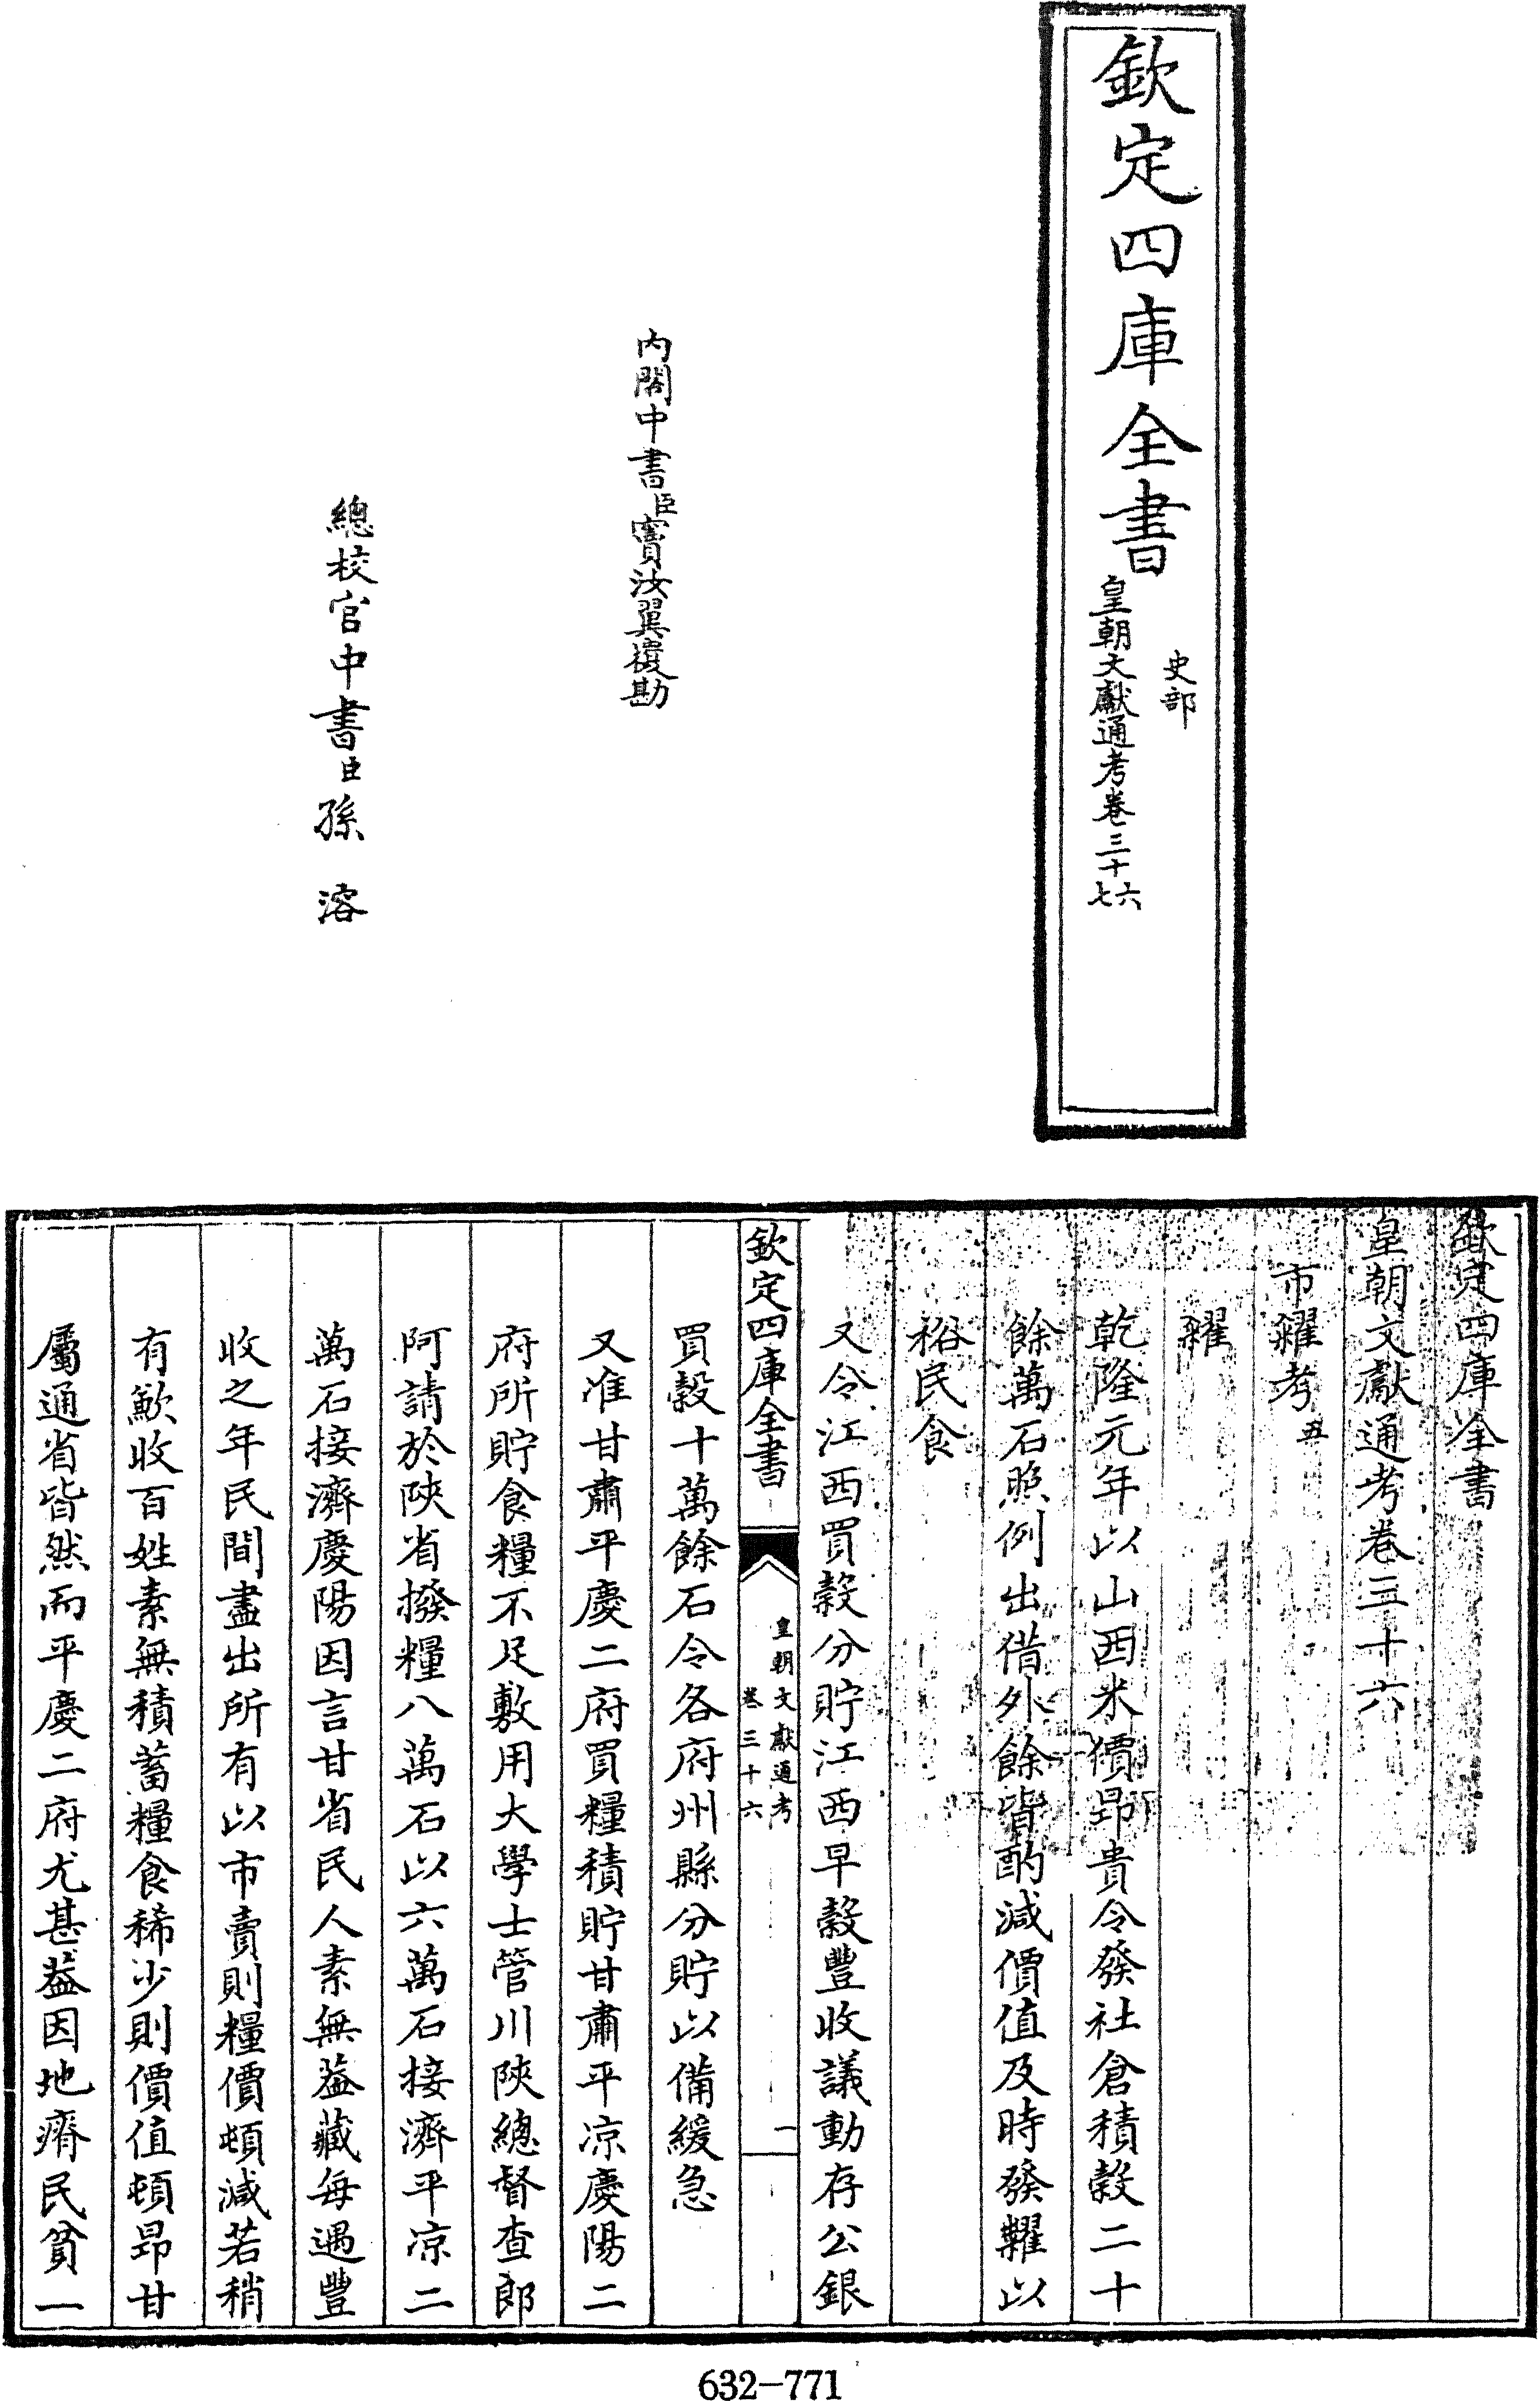 欽定四庫全書
史部
皇朝文獻通考卷三十六
七
內閣中書臣竇汝翼覆勘
總校官中書臣孫溶
欽定四庫全書
皇朝文獻通考卷三十六
市糴考五
糴
乾隆元年以山西米價昻貴令發社倉積穀二十
餘萬石照例出借外餘皆酌減價值及時發糶以
裕民食
又令江西買穀分貯江西早穀豐收議動存公銀
欽定四庫全書
皇朝文獻通考
卷三十六
一
買穀十萬餘石令各府州縣分貯以備緩急
又准甘肅平慶二府買糧積貯甘肅平凉慶陽二
府所貯食糧不足敷用大學士管川陝總督查郎
阿請於陝省撥糧八萬石以六萬石接濟平凉二
萬石接濟慶陽因言甘省民人素無葢藏每遇豐
收之年民間盡出所有以市賣則糧價頓減若稍
有歉收百姓素無積蓄糧食稀少則價值頓昻甘
屬通省皆然而平慶二府尤甚葢因地瘠民貧一
632-771